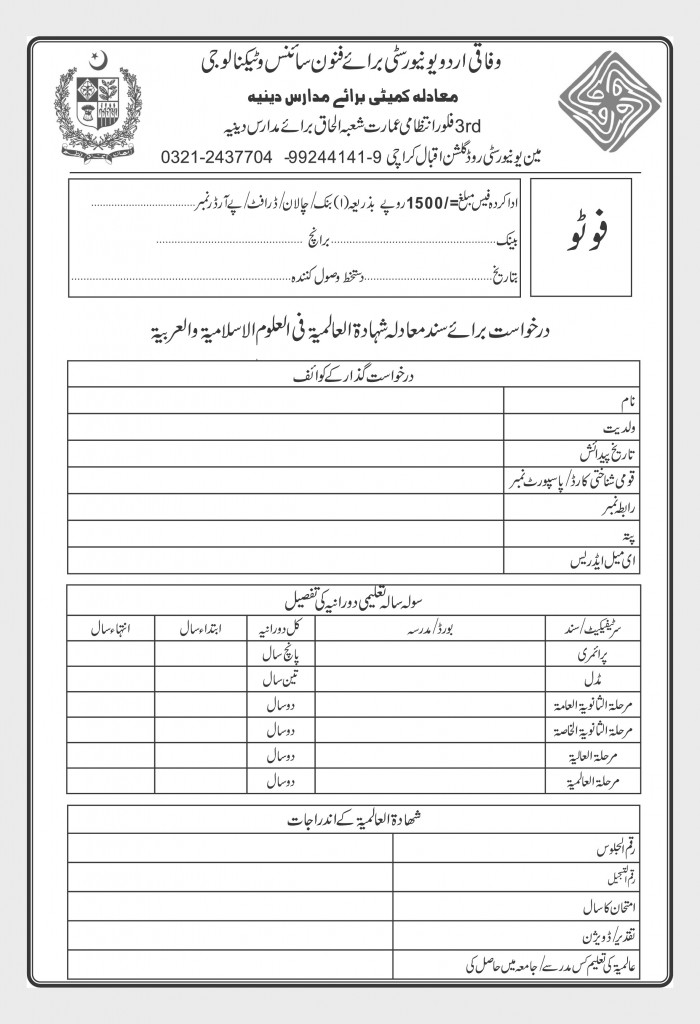 وفاقی اردو یونیورسٹی برائے فنون سائنس و ٹیکنالوجی
معادلہ کمیٹی برائے مدارس دینیہ
3rd فلور انتظامی عمارت شعبہ الحاق برائے مدارس دینیہ
مین یونیورسٹی روڈ گلشن اقبال کراچی 9-99244141- 0321-2437704
ادا کردہ فیس مبلغ =/1500 روپے بذریعہ (۱) بنک/چالان/ڈرافٹ/پے آرڈر نمبر
بینک برانچ
بتاریخ دستخط وصول کنندہ
فوٹو
درخواست برائے سند معادلہ شہادۃ العالمیۃ فی العلوم الاسلامیۃ والعربیۃ
درخواست گذار کے کوائف
نام
ولدیت
تاریخ پیدائش
قومی شناختی کارڈ/پاسپورٹ نمبر
رابطہ نمبر
پتہ
ای میل ایڈریس
سولہ سالہ تعلیمی دورانیہ کی تفصیل
سرٹیفیکیٹ/سند بورڈ/مدرسہ کل دورانیہ ابتداء سال انتہاء سال
پرائمری پانچ سال
مڈل تین سال
مرحلۃ الثانویۃ العامۃ دو سال
مرحلۃ الثانویۃ الخاصۃ دو سال
مرحلۃ العالیۃ دو سال
مرحلۃ العالمیۃ دو سال
شھادۃ العالمیۃ کے اندراجات
رقم الجلوس
رقم التسجیل
امتحان کا سال
تقدیر/ڈویژن
عالمیۃ کی تعلیم کس مدرسے/جامعہ میں حاصل کی